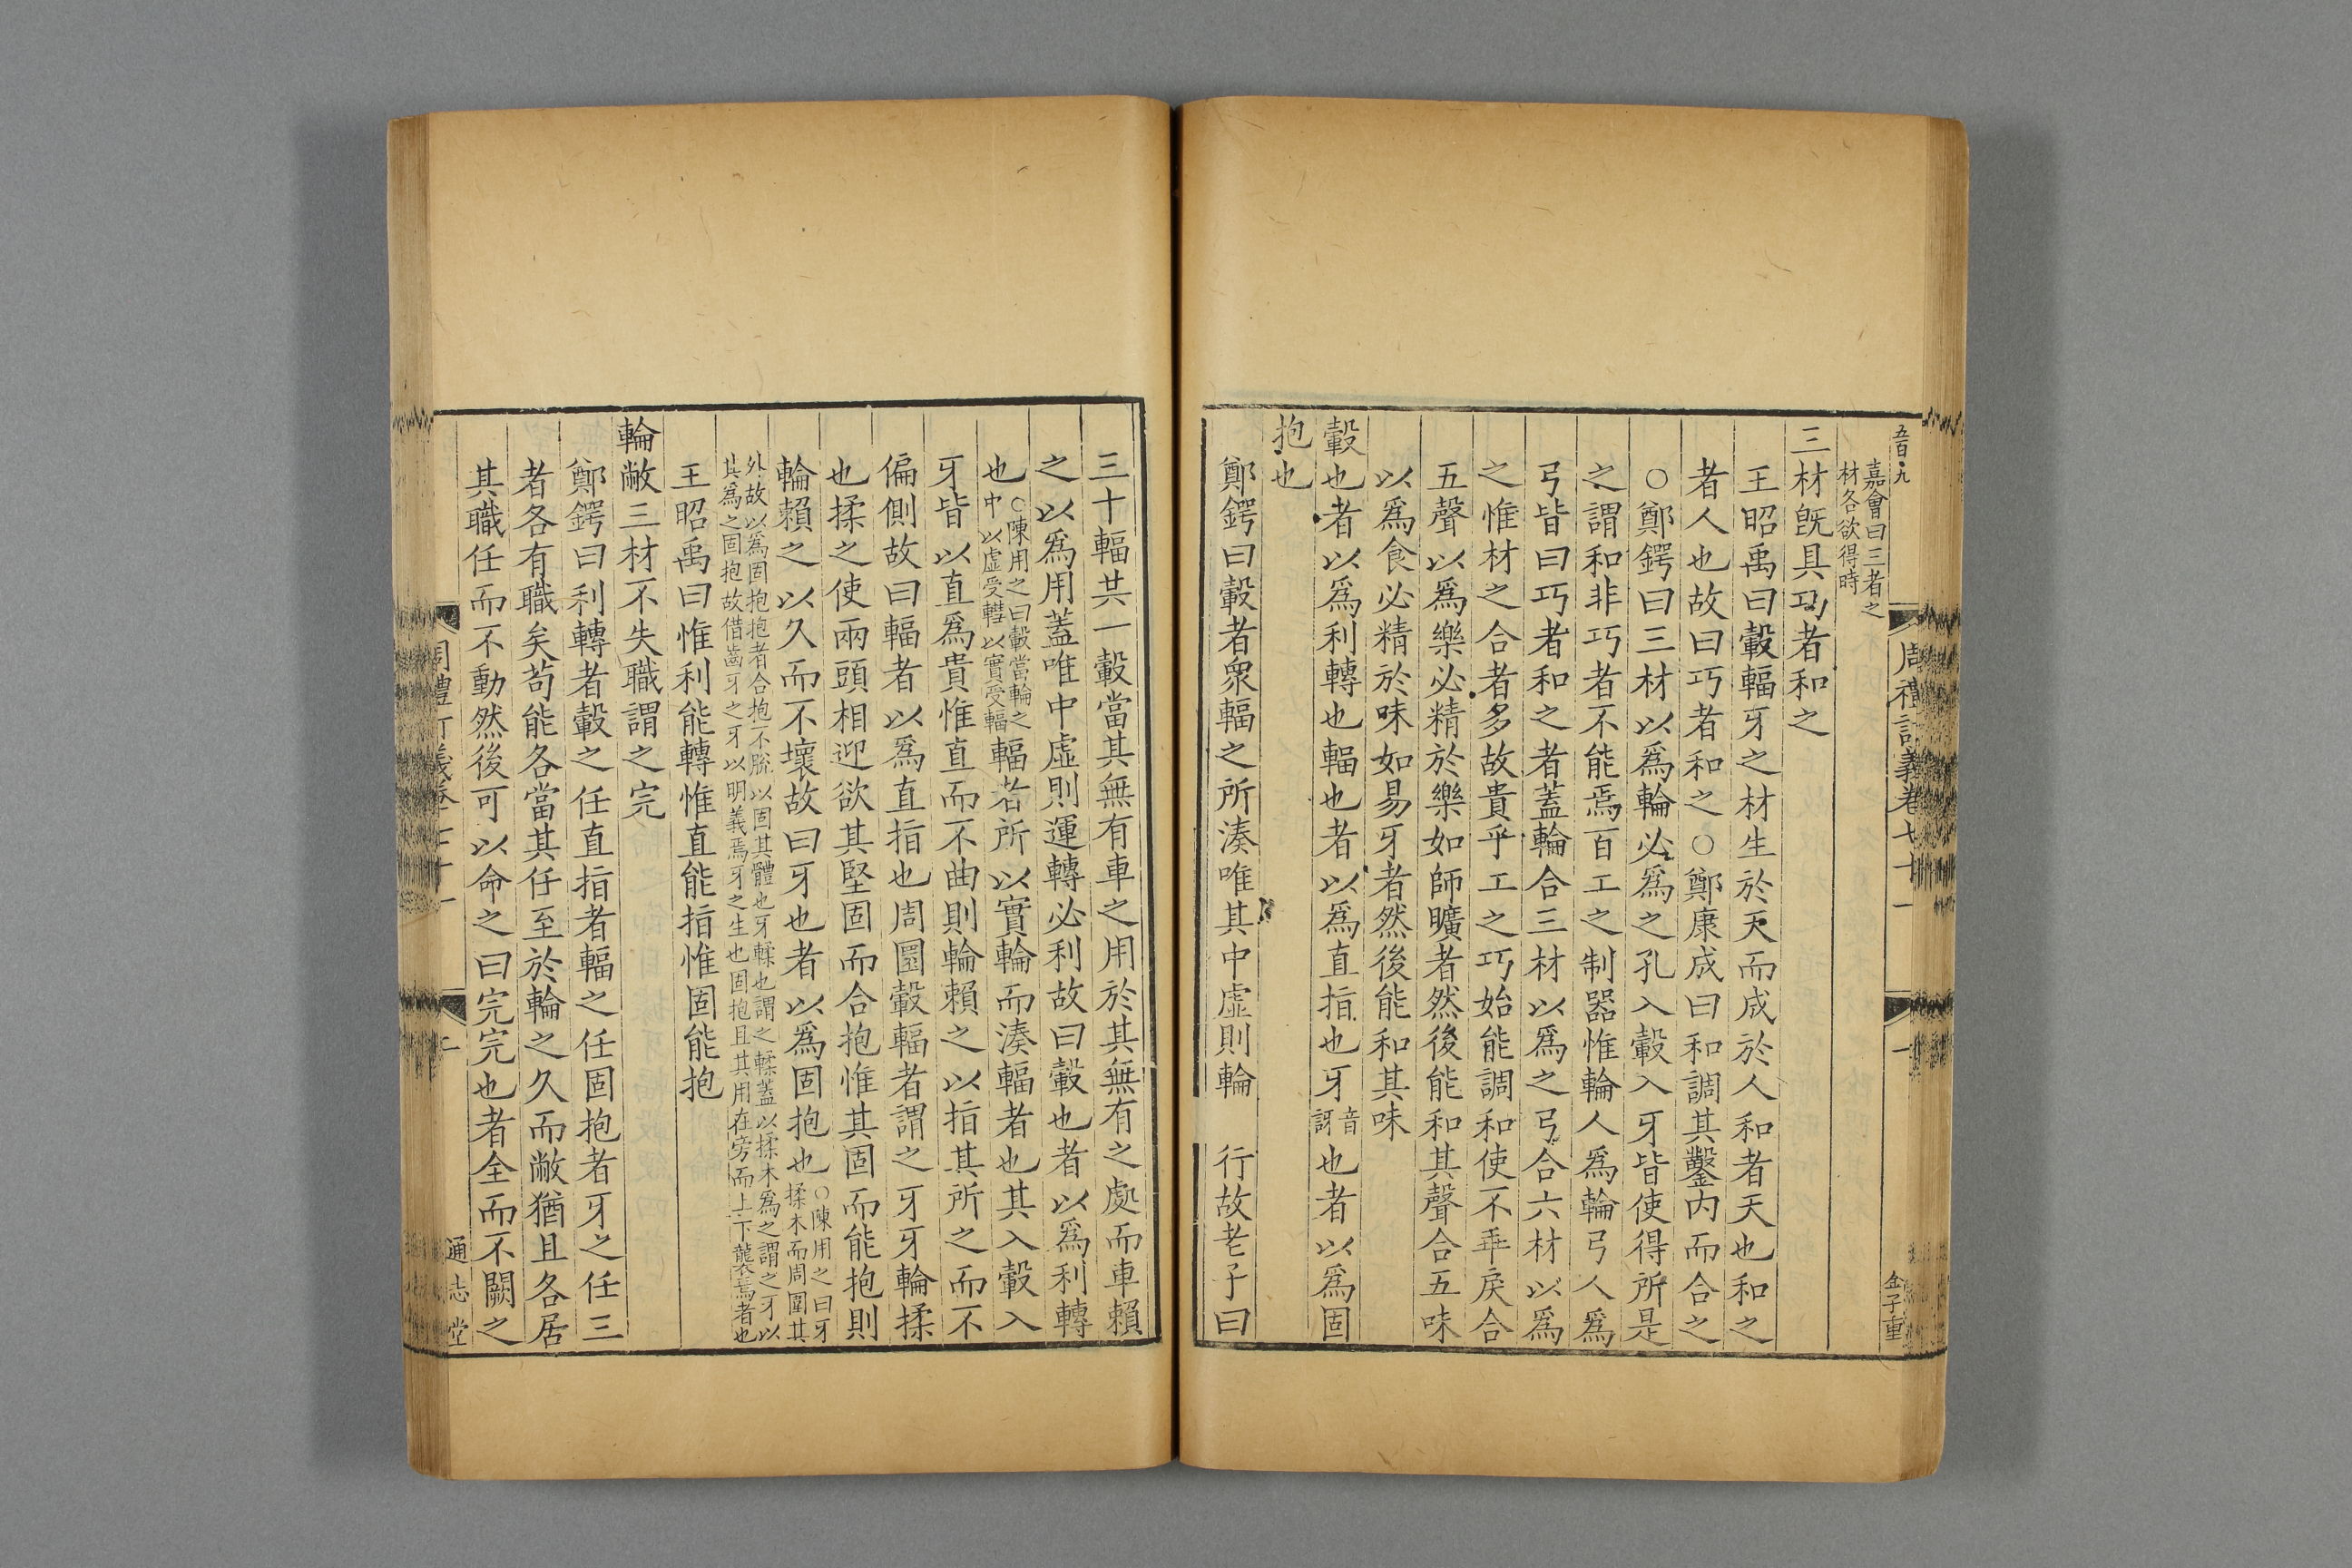 五百九
周禮訂義卷七十一
一
金子重
嘉會曰三者之
材各欲得時
三材旣具巧者和之
王昭禹曰轂輻牙之材生於天而成於人和者天也和之
者人也故曰巧者和之○鄭康成曰和調其鑿內而合之
○鄭鍔曰三材以爲輪必爲之孔入轂入牙皆使得所是
之謂和非巧者不能焉百工之制器惟輪人爲輪弓人爲
弓皆曰巧者和之者蓋輪合三材以爲之弓合六材以爲
之惟材之合者多故貴乎工之巧始能調和使不乖戾合
五聲以爲樂必精於樂如師曠者然後能和其聲合五味
以爲食必精於味如易牙者然後能和其味
轂也者以爲利轉也輻也者以爲直指也牙音訝也者以爲固
抱也
鄭鍔曰轂者衆輻之所湊唯其中虛則輪行故老子曰
三十輻共一轂當其無有車之用於其無有之處而車賴
之以爲用蓋唯中虛則運轉必利故曰轂也者以爲利轉
也○陳用之曰轂當輪之中以虛受轊以實受輻輻者所以實輪而湊輻者也其入轂入
牙皆以直爲貴惟直而不曲則輪賴之以指其所之而不
偏側故曰輻者以爲直指也周圜轂輻者謂之牙牙輪揉
也揉之使兩頭相迎欲其堅固而合抱惟其固而能抱則
輪賴之以久而不壞故曰牙也者以爲固抱也○陳用之曰牙揉木而周圍其
外故以爲固抱抱者合抱不脫以固其體也牙輮也謂之輮蓋以揉木爲之謂之牙以
其爲之固抱故借齒牙之牙以明義焉牙之生也固抱且其用在旁而上下襲焉者也
王昭禹曰惟利能轉惟直能指惟固能抱
輪敝三材不失職謂之完
鄭鍔曰利轉者轂之任直指者輻之任固抱者牙之任三
者各有職矣苟能各當其任至於輪之久而敝猶且各居
其職任而不動然後可以命之曰完完也者全而不闕之
周禮訂義卷七十一
二
通志堂